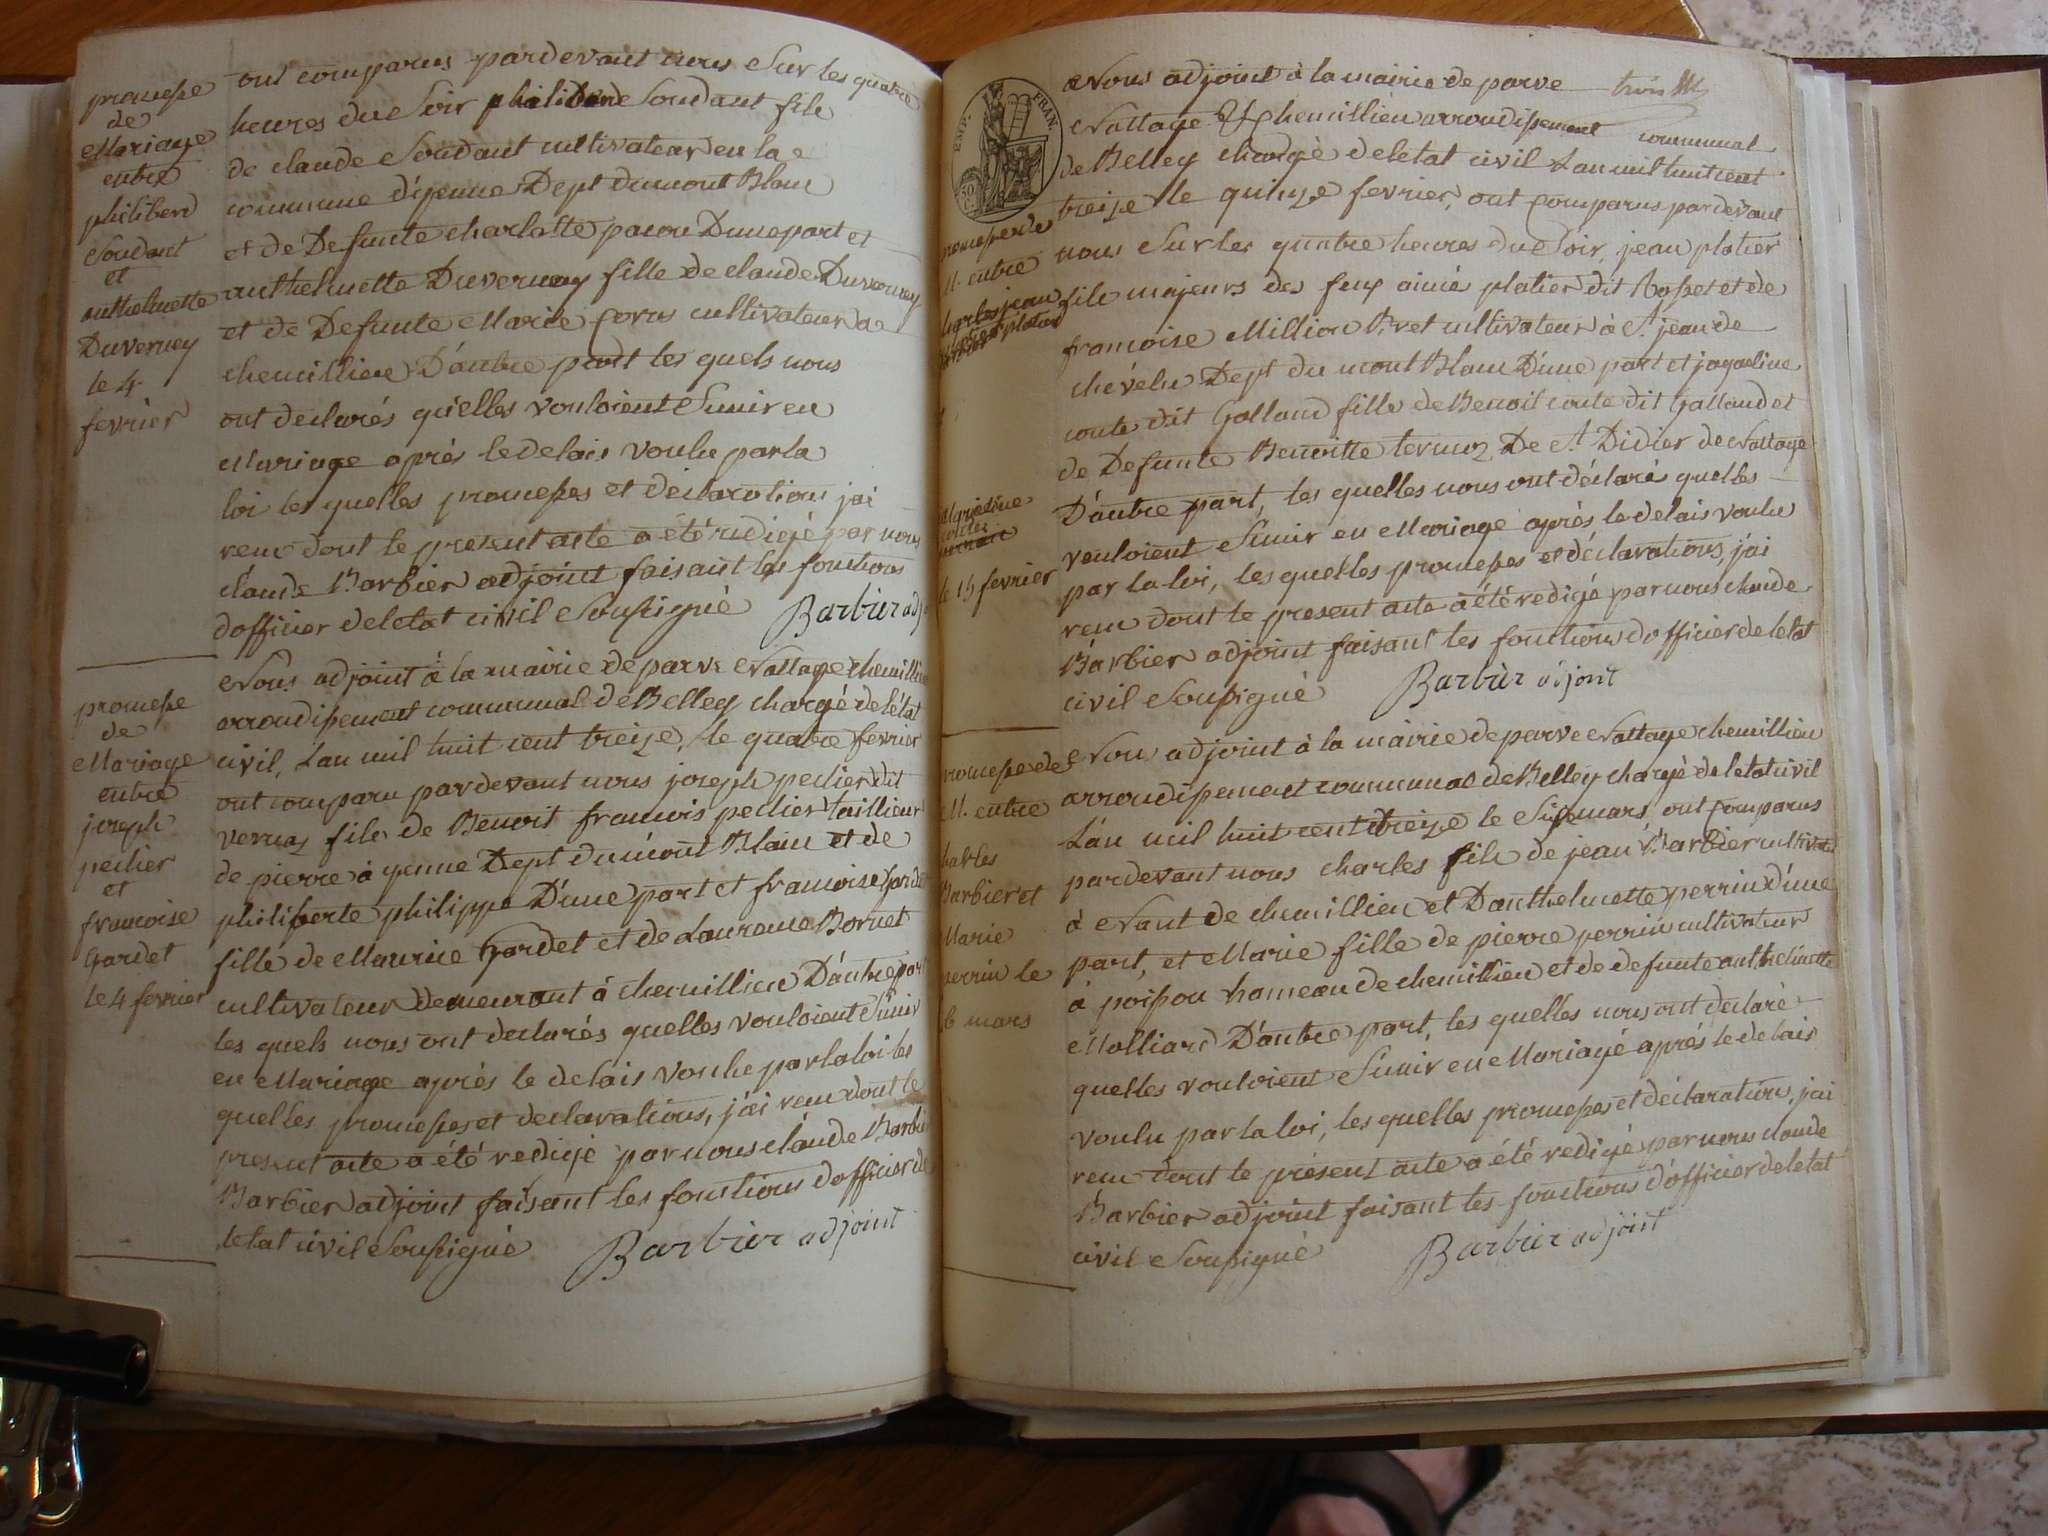 promesse
de
Mariage
entre
philiberd
Soudant
et
anthelmette
Duverney
le 4
fevrier
ont comparus pardevant nous Sur les quatre
heures du Soir philiberd Soudant fils
de claude Soudant cultivateur en la
commune d'iyenne Dept du mont Blanc
et de Defunte charlotte pacou D'une part et
anthelmette Duverney fille de claude Duverney
et de Defunte Marie corus cultivateur a
chemillieu D'autre part les quels nous
ont declarés qu'elles vouloient S'unir en
Mariage après le delais voulu par la
loi les quelles promesses et déclarations j'ai
recu dont le present acte a été rédigé par nous
claude Barbier adjoint faisant les fonctions
d'officier de letat civil Soussigné Barbier adj
promesse
de
Mariage
entre
joseph
peclier
et
francoise
Gardet
le 4 fevrier
Nous adjoint à la mairie de parve Nattage chemillieu
arrondissement communal de Belley chargé de l'état
civil, L'an mil huit cent treize, le quatre fevrier
ont comparu pardevant nous joseph peclier dit
vernaz fils de Benoit francois peclier taillieur
de pierre à yenne Dept du mont Blanc et de
philiberte philippe D'une part et francoise Gardet
fille de Maurice Gardet et de Laurence Bornet
cultivateur demeurant à chemillieu D'autre part
les quels nous ont declarés quelles vouloient S'unir
en Mariage après le delais voulu par la loi les
quelles promesses et declarations, j'ai recu dont le
present acte a été redigé par nous claude Barbier
Barbier adjoint faisant les fonctions d'officier de
letat civil Soussigné Barbier adjoint
EMP. FRAN.
Nous adjoint à la mairie de parve trois
Nattage & chemillieu arrondissement communal
de Belley chargé de letat civil L'an mil huit cent
treize le quinze fevrier, ont comparus pardevant
nous Sur les quatre heures du Soir, jean platier
fils majeurs des feux aimé platier dit Rosset et de
francoise Million Bret cultivateur à St jean de
chévelu Dept du mont Blanc D'une part et jaqueline
conte dit Golland fille de Benoit conte dit Galland et
de Defunte Benoitte termoz De St Didier de Nattage
D'autre part, les quelles nous ont déclaré quelles
vouloient S'unir en Mariage après le delais voulu
par la loi, les quelles promesses et déclarations, j'ai
recu dont le present acte a été redigé par nous claude
Barbier adjoint faisant les fonctions d'officier de letat
civil Soussigné Barbier adjoint
promesse de
M. entre
jean
le 15 fevrier
promesse de
M. entre
harles
Barbier et
Marie
perrin le
6 mars
Nou adjoint à la mairie de parve Nattage chemillieu
arrondissement communal de Belley chargé de letat civil
L'an mil huit cent treize le Six mars, ont comparus
pardevant nous charles fils de jean Barbier cultivateur
à Nant de chemillieu et D'anthelmette perrin d'une
part, et Marie fille de pierre perrin cultivateur
à poisson hameau de chemillieu et de defunte anthelmette
Molliard D'autre part, les quelles nous ont declaré
quelles vouloient S'unir en Mariage après le delais
voulu par la loi, les quelles promesses et déclarations, j'ai
recu dont le présent acte a été redigé par nous claude
Barbier adjoint faisant les fonctions d'officier de letat
civil Soussigné Barbier adjoint